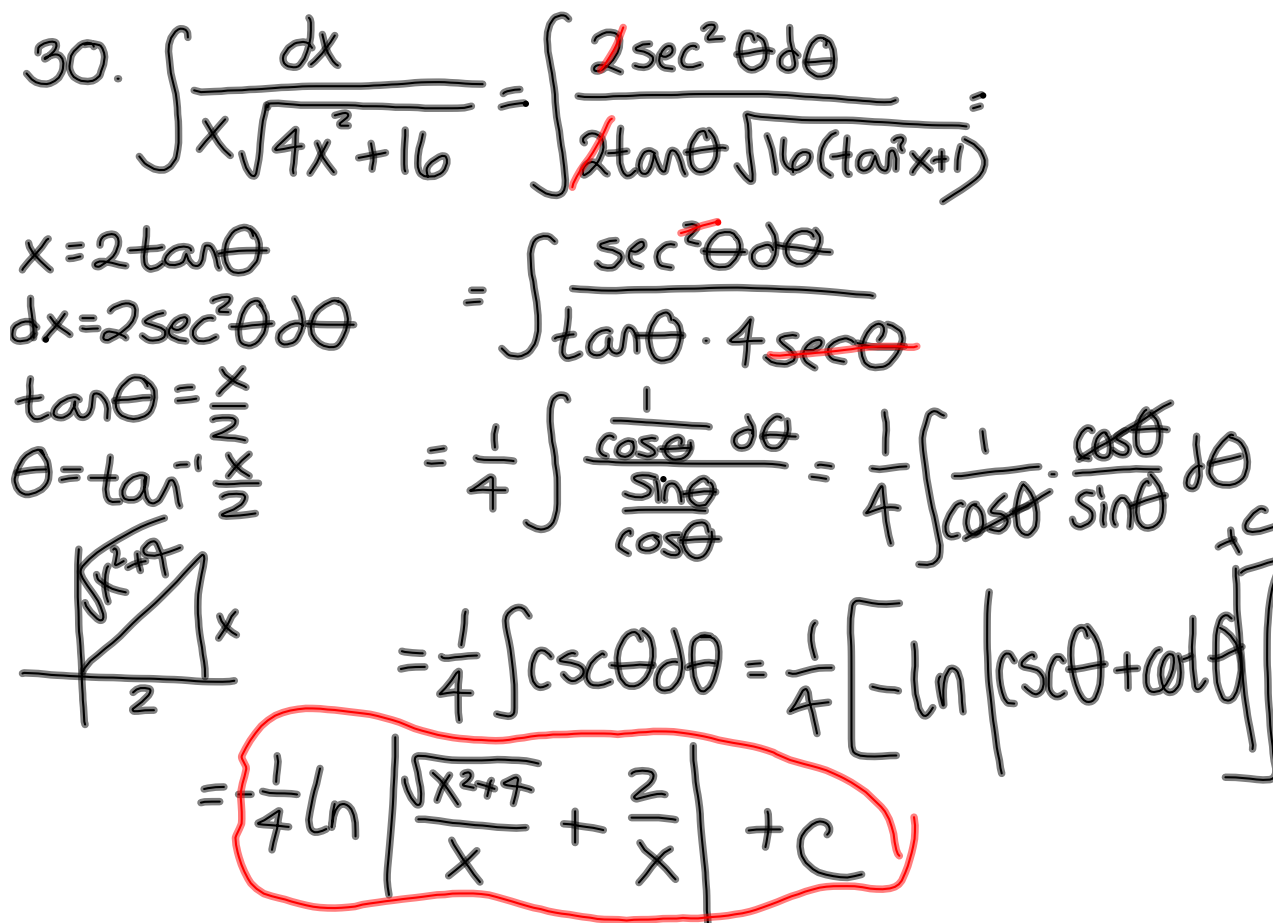 30. ∫ dx / (x√(4x² + 16)) = ∫ 2sec²θdθ / (2tanθ√(16(tan²x+1))) =
x = 2tanθ
= ∫ sec²θdθ / (tanθ · 4secθ)
dx = 2sec²θdθ
tanθ = x/2
= 1/4 ∫ (1/cosθ dθ) / (sinθ/cosθ) = 1/4 ∫ 1/cosθ · cosθ/sinθ dθ
θ = tan⁻¹ x/2
√(x²+4)
x
2
= 1/4 ∫ cscθdθ = 1/4 [-ln |cscθ + cotθ|] + C
= -1/4 ln | √(x²+4)/x + 2/x | + C